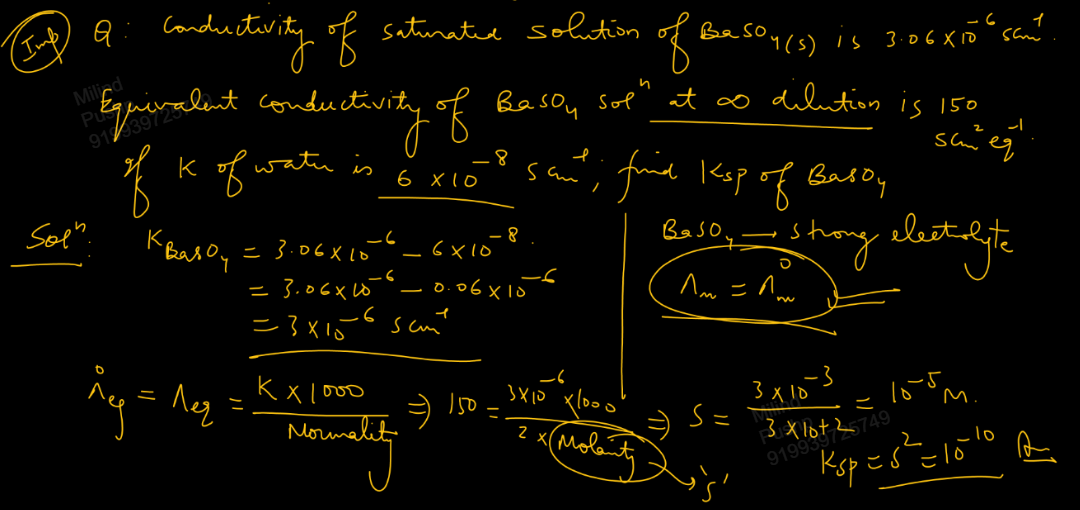 Imp Q: Conductivity of saturated solution of BaSO4(s) is 3.06×10⁻⁶ Scm⁻¹.
Equivalent conductivity of BaSO4 solⁿ at ∞ dilution is 150
Scm² eq⁻¹.
If K of water is 6 ×10⁻⁸ S cm⁻¹; find Ksp of BaSO4
Solⁿ: K BaSO4 = 3.06×10⁻⁶ – 6×10⁻⁸.
= 3.06×10⁻⁶ – 0.06×10⁻⁶
= 3×10⁻⁶ S cm⁻¹
BaSO4 → strong electrolyte
Λm = Λ°m
Λ°eq = Λeq = K × 1000 / Normality ⇒ 150 = 3×10⁻⁶ ×1000 / 2 × Molarity ⇒ S = 3×10⁻³ / 3×10+2 = 10⁻⁵ M.
→ 's'
Ksp = s² = 10⁻¹⁰ Ans
Milind
919939725749
Milind
919939725749